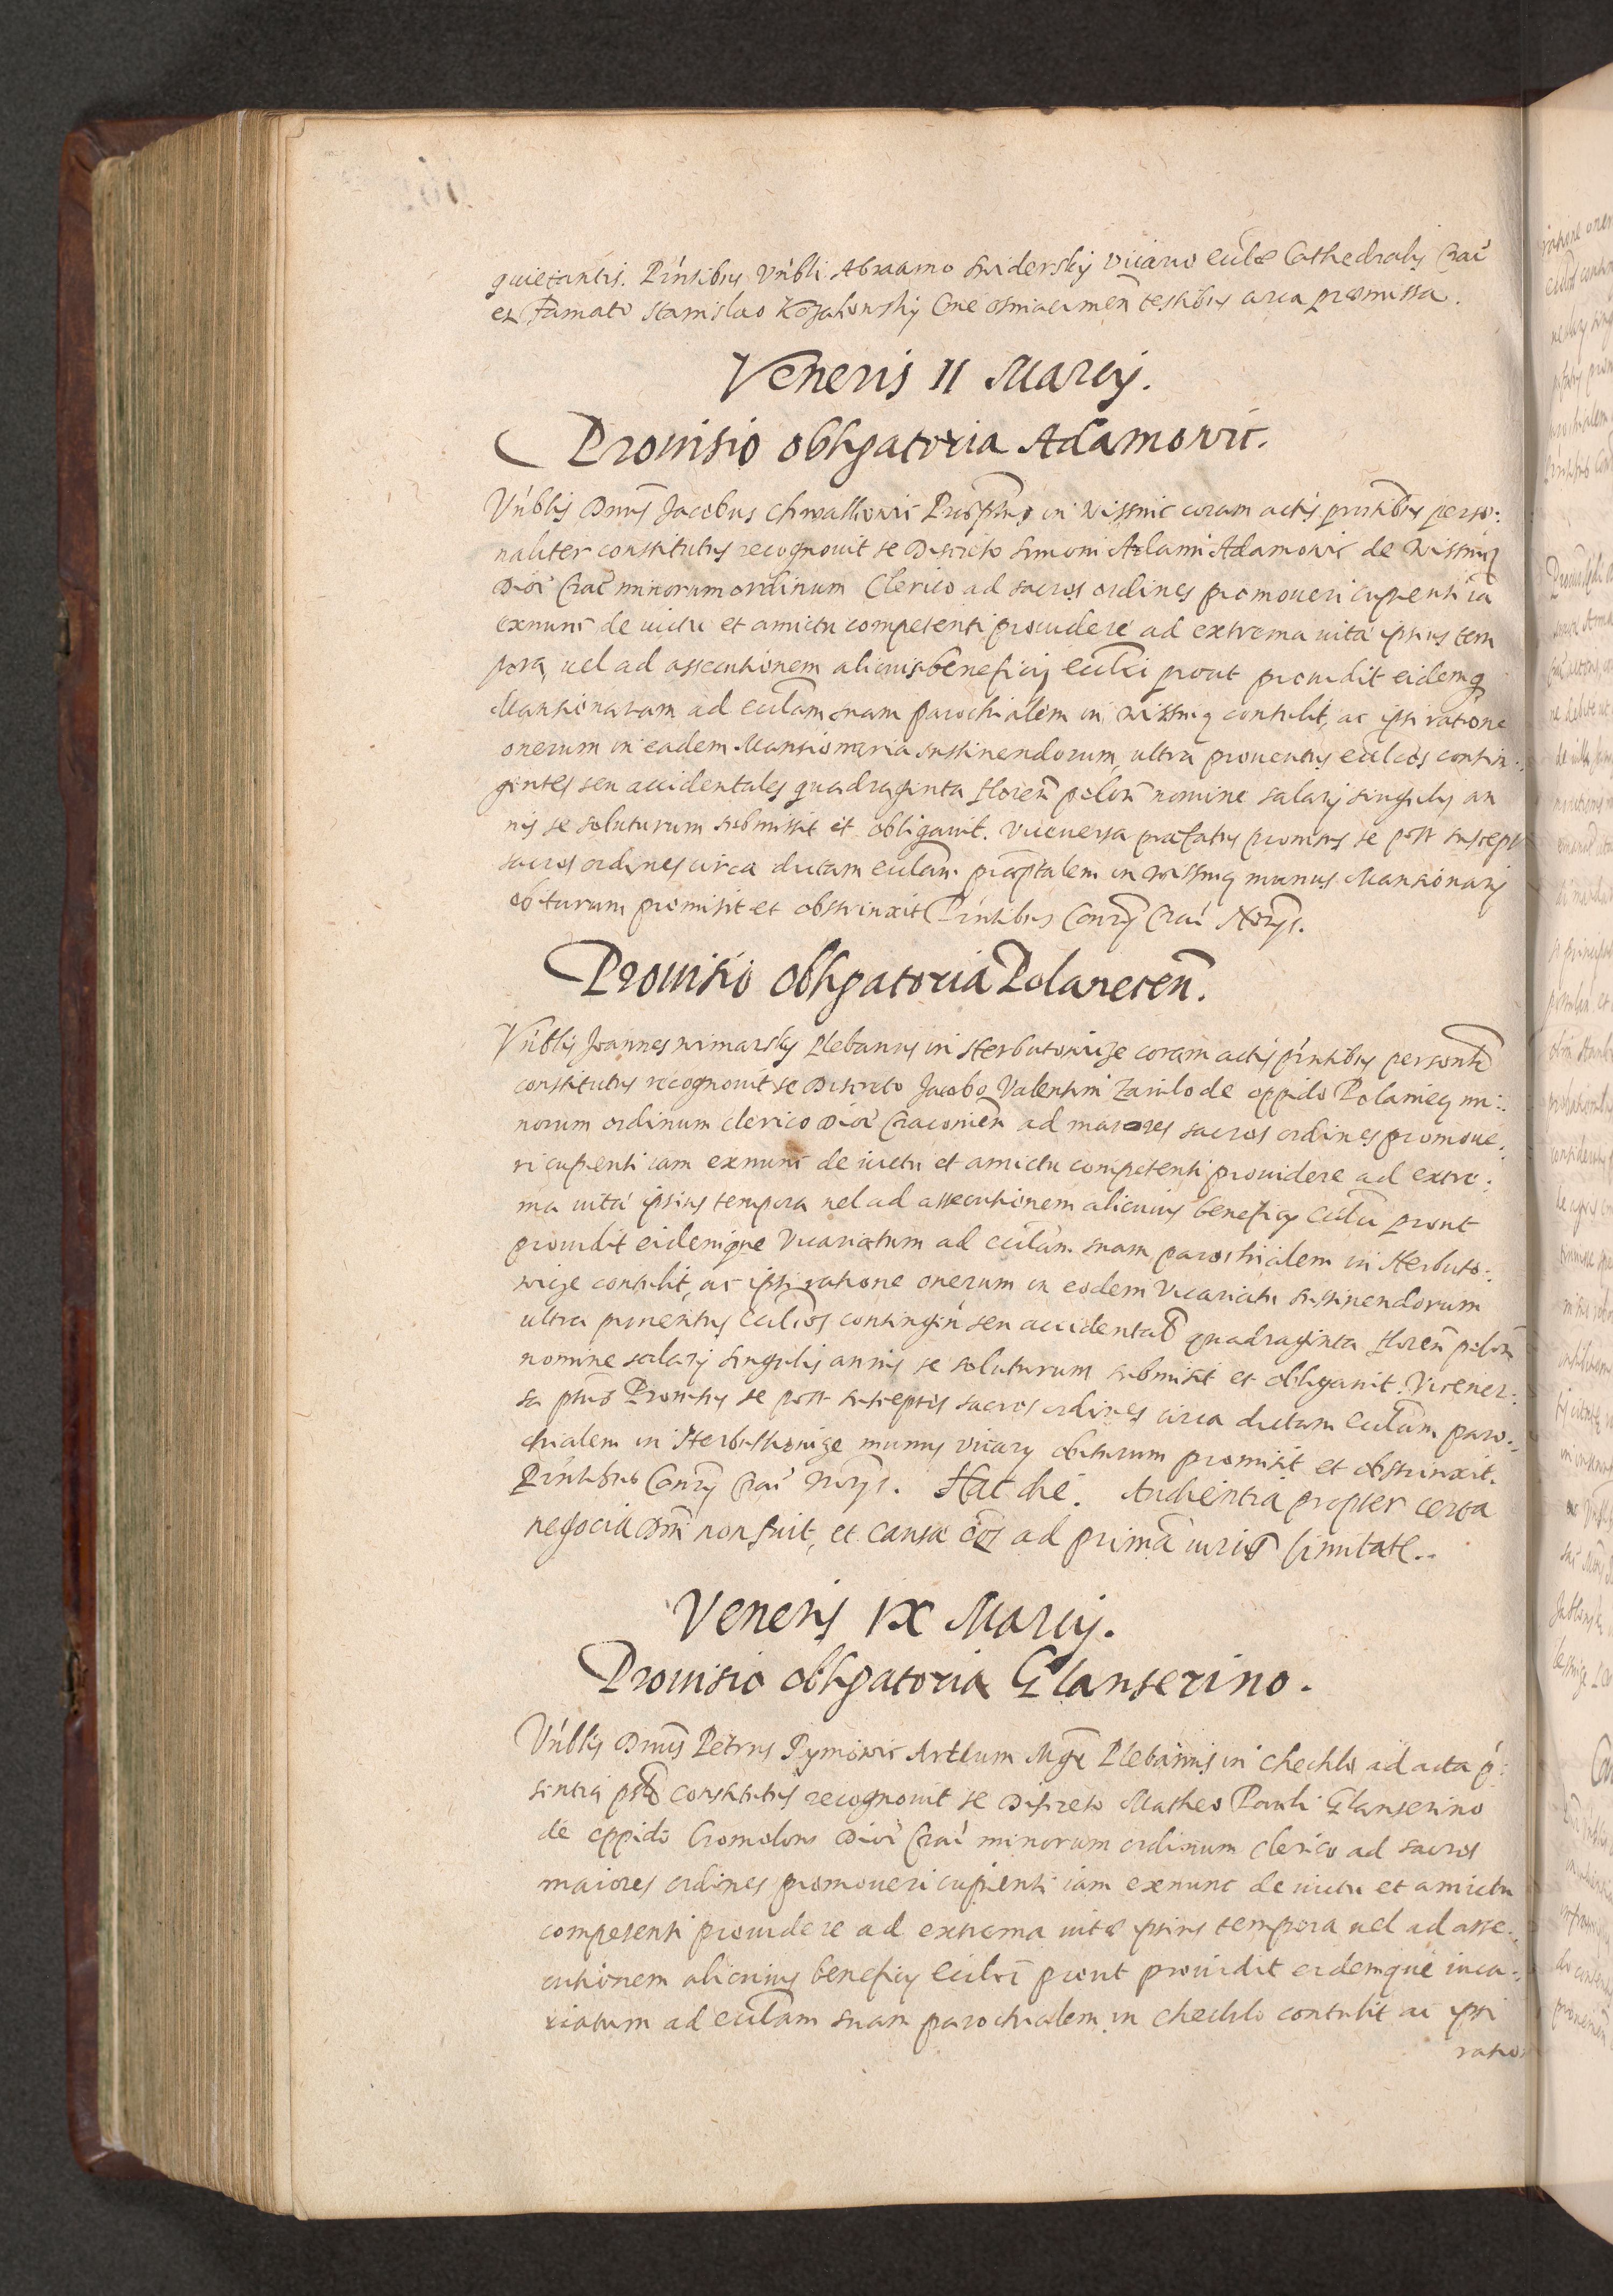 quietantis. Pn̄tibus Vn̄bli Abraamo Swidersky vicario eccl̄æ Cathedralis Crac̄
et Famato Stanislao Kozakowsky testibus circa præmissa.
Veneris II Marcij.
Prouisio obligatoria Adamowic.
Vn̄blis Dnūs Jacobus Chwalkowic in Wissnic coram actis præntibus perso:
naliter constitutus recognouit se Discreto Simoni Adami Adamowic de Wissnicz
Dioc̄ Crac̄ minorum ordinum Clerico ad sacros ordines promoueri cupienti iā
exnunc de uictu et amictu competenti prouidere ad extrema uitæ ipsius tem
pora, uel ad assecutionem alicuius beneficij eccl̄ci prout prouidit eidemq
Mansionariam ad eccl̄am suam parochialem in Wissnicz contulit, ac ipsi ratione
onerum in eadem Mansionaria sustinendorum, ultra prouentus eccl̄cos contin:
gentes seu accidentales quadraginta floren̄ polon̄ nomine salarij singulis an
nis se soluturum submissit et obligauit. Viceuersa præfatus prouisus se post suscept
sacros ordines circa dictam eccl̄am præp̄talem in Wissnicz munus Mansionarij
obiturum promisit et obstrinxit Pn̄tibus Con̄rijs Crac̄ Norijs.
Prouisio obligatoria Polanecen̄.
Vn̄blis Joannes Wimarsky Plebanus in Herbutowicze coram actis pn̄tibus personl̄r
constitutus recognouit se Discreto Jacobo Valentini Zawilo de oppido Polaniecz mi:
norum ordinum clerico Dioc̄ Cracouien̄ ad maiores sacros ordines promoue:
ri cupienti iam exnunc de uictu et amictu competenti prouidere ad extre:
ma uitæ ipsius tempora uel ad assecutionem alicuius beneficij eccl̄ci prout
prouidit eidemque Vicariatum ad eccl̄am suam parochialem in Herbuto:
wicze contulit, ac ipsi ratione onerum in eodem Vicariatu sustinendorum
ultra prouentus eccl̄cos contingen̄ seu accidental̄ quadraginta floren̄ polon̄
nomine salarij singulis annis se soluturum submisit et obligauit. Viceuer:
sa Prouisus se post susceptos sacros ordines circa dictam eccl̄am paro:
chialem in Herbuthowicze munus vicarij obiturum promisit et obstrinxit.
Pn̄tibus Con̄rijs Crac̄ Norijs. Hac die. Audientia propter certa
negocia Dnī non fuit, et causæ ad primā iuris limitatæ..
Veneris IX Marcij.
Prouisio obligatoria Glanserino.
Vn̄blis Dnūs Petrus Pymowic Artium Mgr̄ Plebanus in Chechlo ad acta p̄
sentia constitutus recognouit se Discreto Matheo Pauli Glanserino
de oppido Cromolow Dioc̄ Crac̄ minorum ordinum clerico ad sacros
maiores ordines promoueri cupienti iam exnunc de uictu et amictu
competenti prouidere ad extrema uitæ ipsius tempora uel ad asse:
cutionem alicuius beneficij eccl̄ci prout prouidit eidemque uica:
riatum ad eccl̄am suam parochialem in Chechlo contulit ac ipsi
ratio